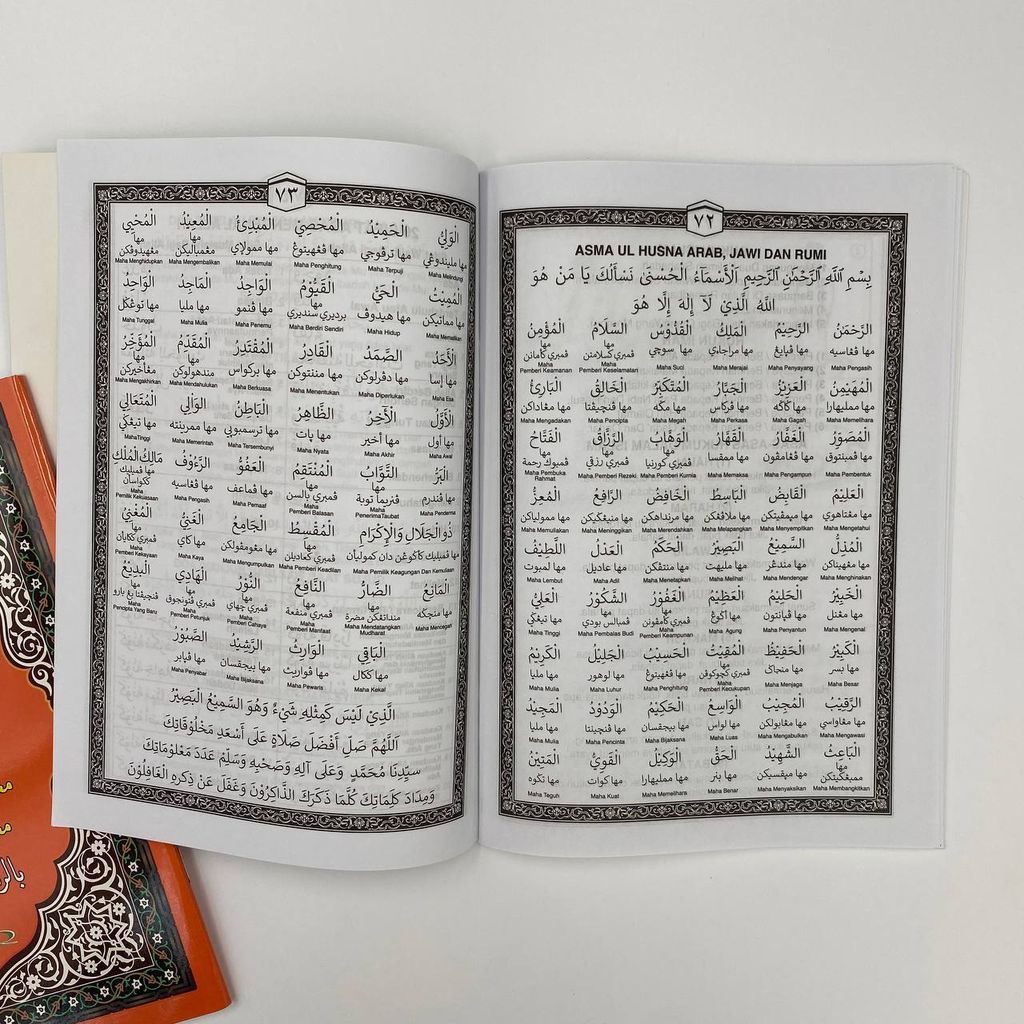 ٧٢
ASMA UL HUSNA ARAB, JAWI DAN RUMI
بِسْمِ اللَّهِ الرَّحْمَٰنِ الرَّحِيمِ اَلْأَسْمَاءُ الْحُسْنَى نَسْأَلُكَ يَا مَنْ هُوَ
اللهُ الَّذِيْ لَآ إِلَهَ إِلَّا هُوَ
الرَّحْمَنُ الرَّحِيْمُ الْمَلِكُ الْقُدُّوْسُ السَّلَامُ الْمُؤْمِنُ
مها ڤڠاسيه مها ڤڽايڠ مها مراجاي مها سوچي مها ڤمبري كسلامتن مها ڤمبري كأمانن
Maha Pengasih Maha Penyayang Maha Merajai Maha Suci Maha Pemberi Keselamatan Maha Pemberi Keamanan
الْمُهَيْمِنُ الْعَزِيْزُ الْجَبَّارُ الْمُتَكَبِّرُ الْخَالِقُ الْبَارِئُ
مها ممليهارا مها ڬاڬه مها ڤركاس مها مڬه مها ڤنچيڤتا مها مڠاداكن
Maha Memelihara Maha Gagah Maha Perkasa Maha Megah Maha Pencipta Maha Mengadakan
الْمُصَوِّرُ الْغَفَّارُ الْقَهَّارُ الْوَهَّابُ الرَّزَّاقُ الْفَتَّاحُ
مها ڤمبنتوق مها ڤڠامڤون مها ممقسا مها ڤمبري كورنيا مها ڤمبري رزقي مها ڤمبوك رحمة
Maha Pembentuk Maha Pengampun Maha Memaksa Maha Pemberi Kurnia Maha Pemberi Rezeki Maha Pembuka Rahmat
الْعَلِيْمُ الْقَابِضُ الْبَاسِطُ الْخَافِضُ الرَّافِعُ الْمُعِزُّ
مها مڠتاهوي مها مڽمڤيتكن مها ملاڤڠكن مها مرنداهكن مها منيڠڬيكن مها ممولياكن
Maha Mengetahui Maha Menyempitkan Maha Melapangkan Maha Merendahkan Maha Meninggikan Maha Memuliakan
الْمُذِلُّ السَّمِيْعُ الْبَصِيْرُ الْحَكَمُ الْعَدْلُ اللَّطِيْفُ
مها مڠهيناكن مها مندڠر مها مليهت مها منتڤكن مها عاديل مها لمبوت
Maha Menghinakan Maha Mendengar Maha Melihat Maha Menetapkan Maha Adil Maha Lembut
الْخَبِيْرُ الْحَلِيْمُ الْعَظِيْمُ الْغَفُوْرُ الشَّكُوْرُ الْعَلِيُّ
مها مڠنل مها ڤڽانتون مها اڬوڠ مها ڤمبري كأمڤونن مها ڤمبالس بودي مها تيڠڬي
Maha Mengenal Maha Penyantun Maha Agung Maha Pemberi Keampunan Maha Pembalas Budi Maha Tinggi
الْكَبِيْرُ الْحَفِيْظُ الْمُقِيْتُ الْحَسِيْبُ الْجَلِيْلُ الْكَرِيْمُ
مها بسر مها منجاڬ مها ڤمبري كچوكوڤن مها ڤڠهيتوڠ مها لوهور مها مليا
Maha Besar Maha Menjaga Maha Pemberi Kecukupan Maha Penghitung Maha Luhur Maha Mulia
الرَّقِيْبُ الْمُجِيْبُ الْوَاسِعُ الْحَكِيْمُ الْوَدُوْدُ الْمَجِيْدُ
مها مڠاواسي مها مڠابولكن مها لواس مها بيجقسان مها ڤنچينتا مها مليا
Maha Mengawasi Maha Mengabulkan Maha Luas Maha Bijaksana Maha Pencinta Maha Mulia
الْبَاعِثُ الشَّهِيْدُ الْحَقُّ الْوَكِيْلُ الْقَوِيُّ الْمَتِيْنُ
مها ممبڠكيتكن مها مڽقسيكن مها بنر مها ممليهارا مها كوات مها تڬوه
Maha Membangkitkan Maha Menyaksikan Maha Benar Maha Memelihara Maha Kuat Maha Teguh
٧٣
الْوَلِيُّ الْحَمِيْدُ الْمُحْصِيْ الْمُبْدِئُ الْمُعِيْدُ الْمُحْيِي
مها مليندوڠي مها ترڤوجي مها ڤڠهيتوڠ مها ممولاي مها مڠمباليكن مها مڠهيدوڤكن
Maha Melindungi Maha Terpuji Maha Penghitung Maha Memulai Maha Mengembalikan Maha Menghidupkan
الْمُمِيْتُ الْحَيُّ الْقَيُّوْمُ الْوَاجِدُ الْمَاجِدُ الْوَاحِدُ
مها مماتيكن مها هيدوڤ مها برديري سنديري مها ڤنمو مها مليا مها توڠڬل
Maha Mematikan Maha Hidup Maha Berdiri Sendiri Maha Penemu Maha Mulia Maha Tunggal
الْأَحَدُ الصَّمَدُ الْقَادِرُ الْمُقْتَدِرُ الْمُقَدِّمُ الْمُؤَخِّرُ
مها إسا مها دڤرلوكن مها مننتوكن مها بركواس مها مندهولوكن مها مڠأخيركن
Maha Esa Maha Diperlukan Maha Menentukan Maha Berkuasa Maha Mendahulukan Maha Mengakhirkan
الْأَوَّلُ الْأَخِرُ الظَّاهِرُ الْبَاطِنُ الْوَالِي الْمُتَعَالِي
مها أول مها أخير مها ڽات مها ترسمبوڽي مها ممرينته مها تيڠڬي
Maha Awal Maha Akhir Maha Nyata Maha Tersembunyi Maha Memerintah MahaTinggi
الْبَرُّ التَّوَّابُ الْمُنْتَقِمُ الْعَفُوُّ الرَّءُوْفُ مَالِكُ الْمُلْكِ
مها ڤندرم مها ڤنريما توبة مها ڤمبري بالسن مها ڤماعف مها ڤڠاسيه مها ڤميليك ككواسأن
Maha Penderma Maha PenerimaTaubat Maha Pemberi Balasan Maha Pemaaf Maha Pengasih Maha Pemilik Kekuasaan
ذُو الْجَلَالِ وَالْإِكْرَامِ الْمُقْسِطُ الْجَامِعُ الْغَنِيُّ الْمُغْنِيُّ
مها ڤميليك كأڬوڠن دان كموليأن مها ڤمبري كعاديلن مها مڠومڤولكن مها كاي مها ڤمبري ككايأن
Maha Pemilik Keagungan Dan Kemuliaan Maha Pemberi Keadilan Maha Mengumpulkan Maha Kaya Maha Pemberi Kekayaan
الْمَانِعُ الضَّارُّ النَّافِعُ النُّوْرُ الْهَادِيْ الْبَدِيْعُ
مها منچڬه مها منداتڠكن مضرة مها ڤمبري منفعة مها ڤمبري چهاي مها ڤمبري ڤتونجوق مها ڤنچيڤتا يڠ بارو
Maha Mencegah Maha Mendatangkan Mudharat Maha Pemberi Manfaat Maha Pemberi Cahaya Maha Pemberi Petunjuk Maha Pencipta Yang Baru
الْبَاقِي الْوَارِثُ الرَّشِيْدُ الصَّبُوْرُ
مها ككال مها ڤواريث مها بيجقسان مها ڤڽابر
Maha Kekal Maha Pewaris Maha Bijaksana Maha Penyabar
الَّذِيْ لَيْسَ كَمِثْلِهِ شَيْءٌ وَهُوَ السَّمِيْعُ الْبَصِيْرُ
اَللَّهُمَّ صَلِّ أَفْضَلَ صَلَاةٍ عَلَى أَسْعَدِ مَخْلُوْقَاتِكَ
سَيِّدِنَا مُحَمَّدٍ وَعَلَى آلِهِ وَصَحْبِهِ وَسَلِّمْ عَدَدَ مَعْلُوْمَاتِكَ
وَمِدَادَ كَلِمَاتِكَ كُلَّمَا ذَكَرَكَ الذَّاكِرُوْنَ وَغَفَلَ عَنْ ذِكْرِهِ الْغَافِلُوْنَ